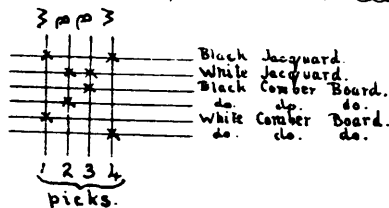 B W W B
Black Jacquard.
White Jacquard.
Black Comber Board.
do. do. do.
White Comber Board.
do. do. do.
1 2 3 4
picks.